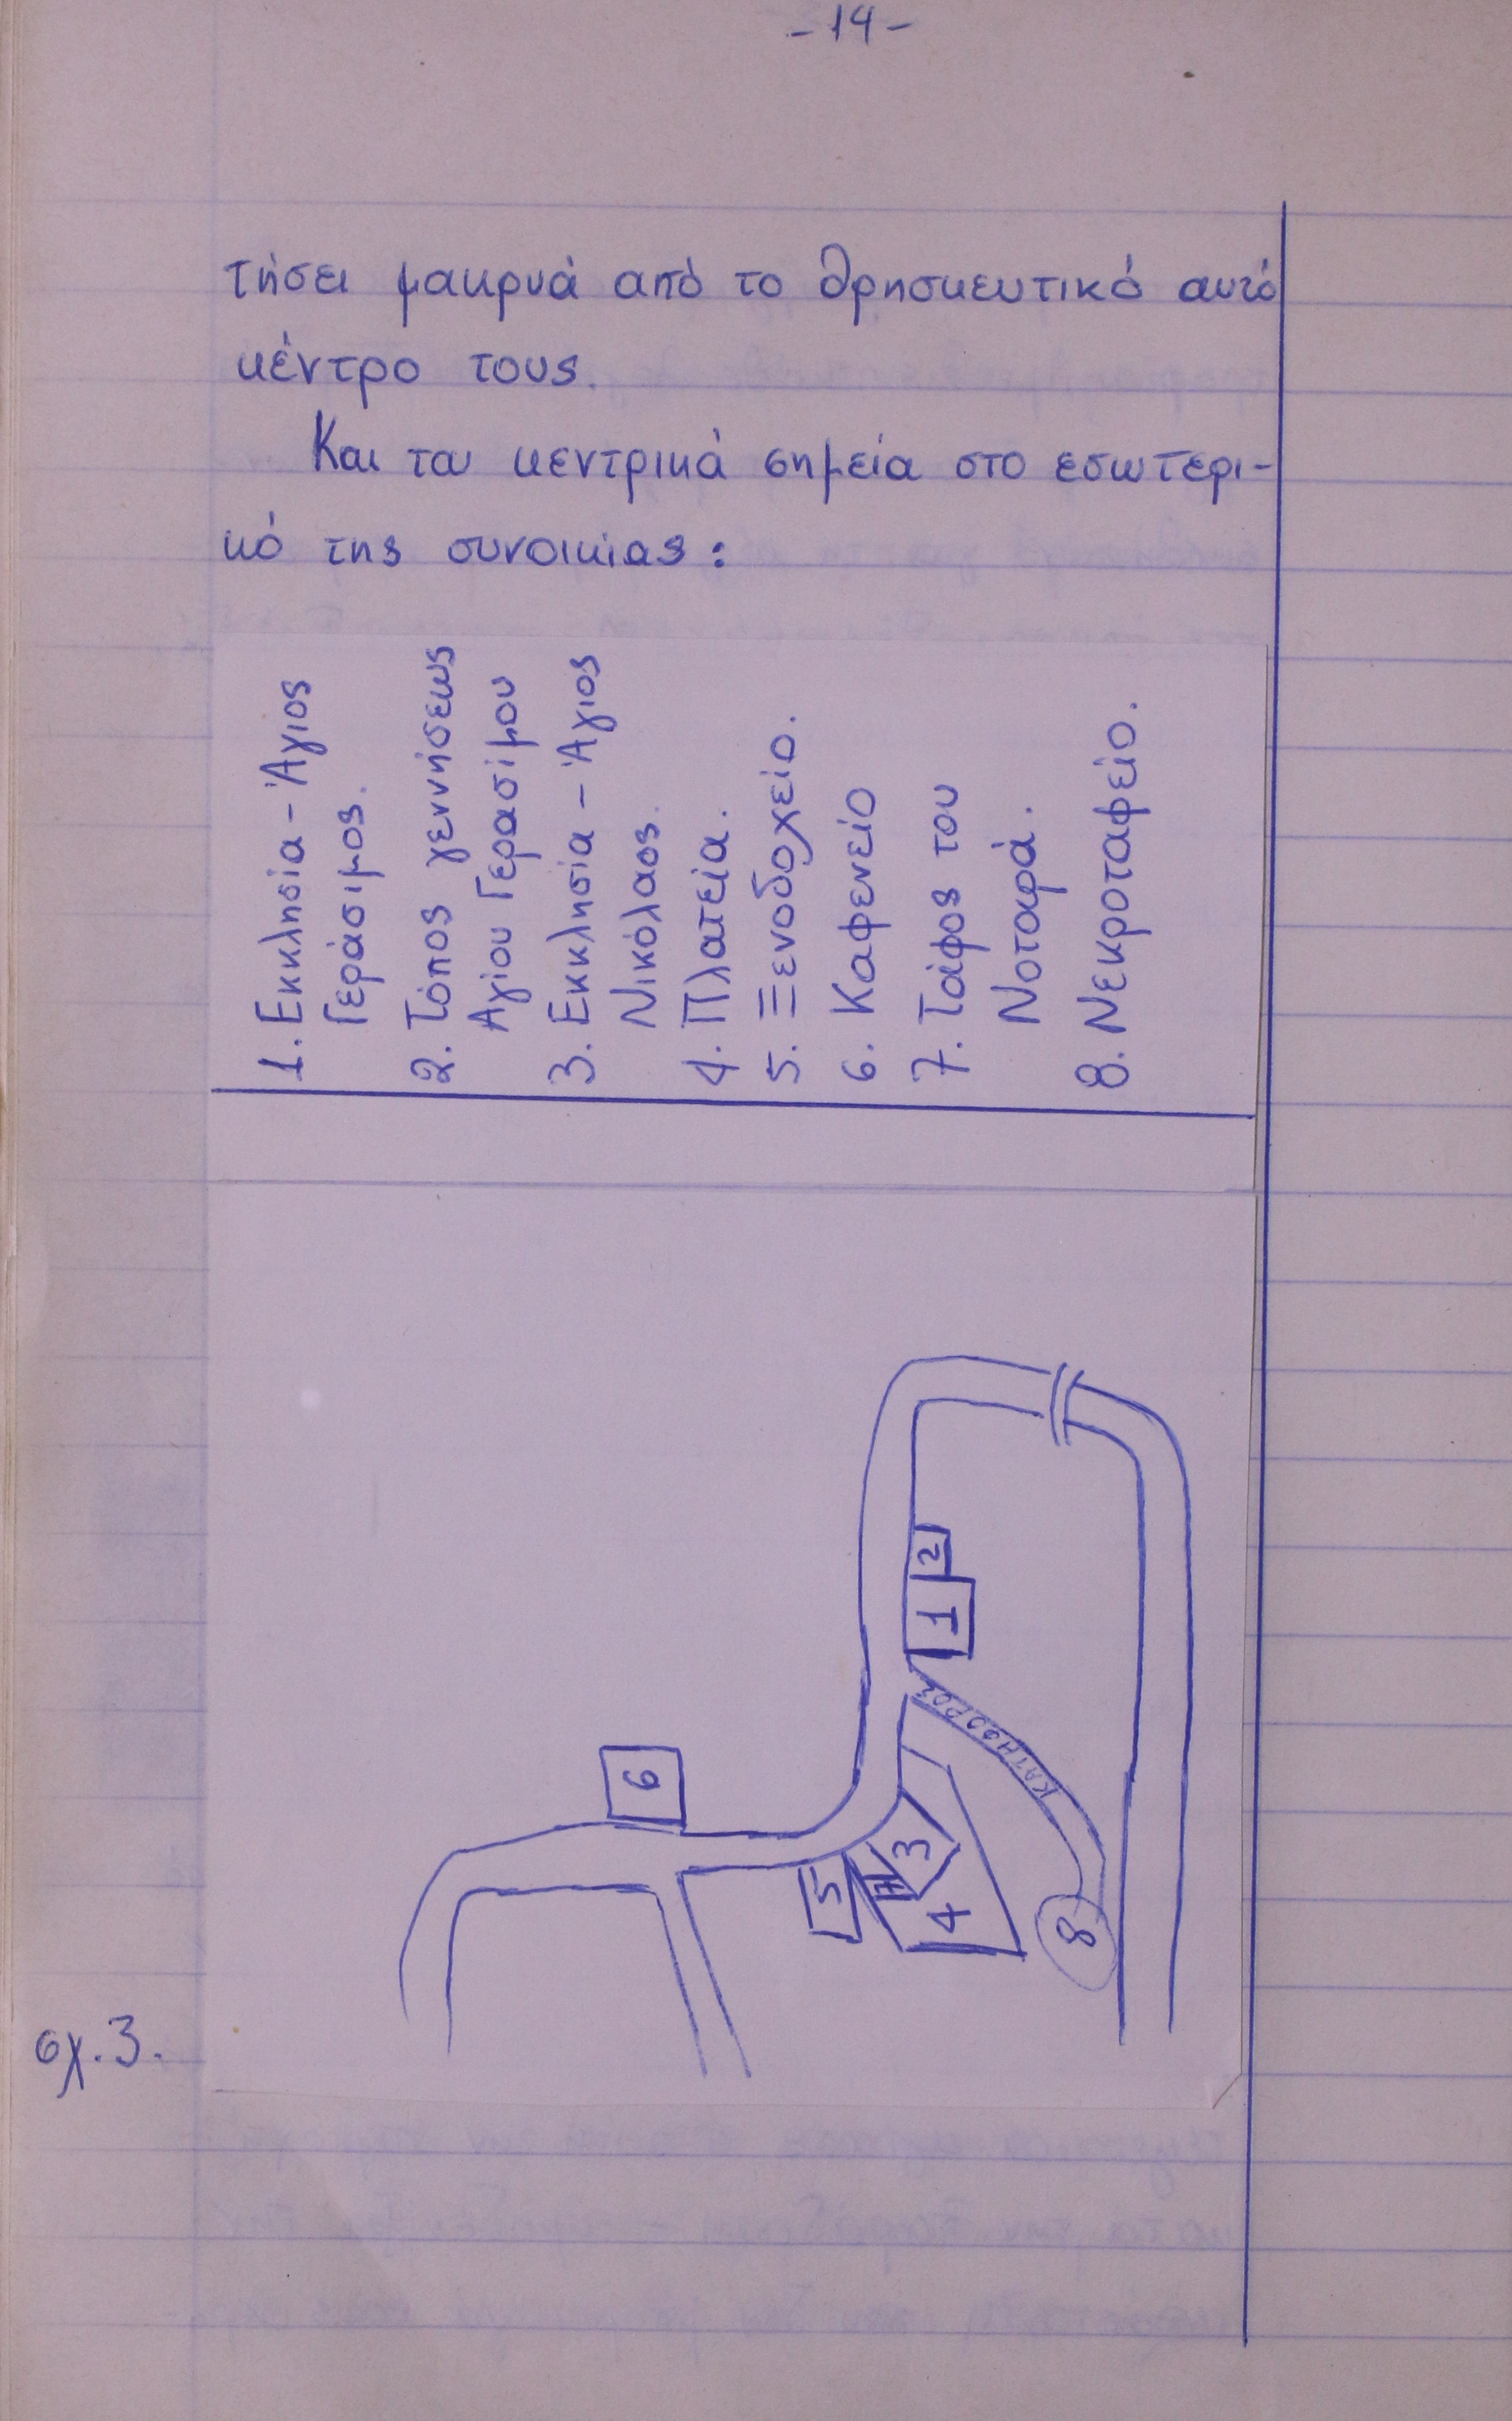 - 14 -
τήσει μακρυά από το θρησκευτικό αυτό
κέντρο τους.
Και τα κεντρικά σημεία στο εσωτερι-
κό της συνοικίας:
1. Εκκλησία - Άγιος
Γεράσιμος.
2. Τόπος γεννήσεως
Αγίου Γερασίμου
3. Εκκλησία - Άγιος
Νικόλαος.
4. Πλατεία.
5. Ξενοδοχείο.
6. Καφενείο
7. Τάφος του
Νοταρά.
8. Νεκροταφείο.
2
1
ΚΑΤΗΦΟΡΟΣ
6
3
7
5
4
8
σχ. 3.